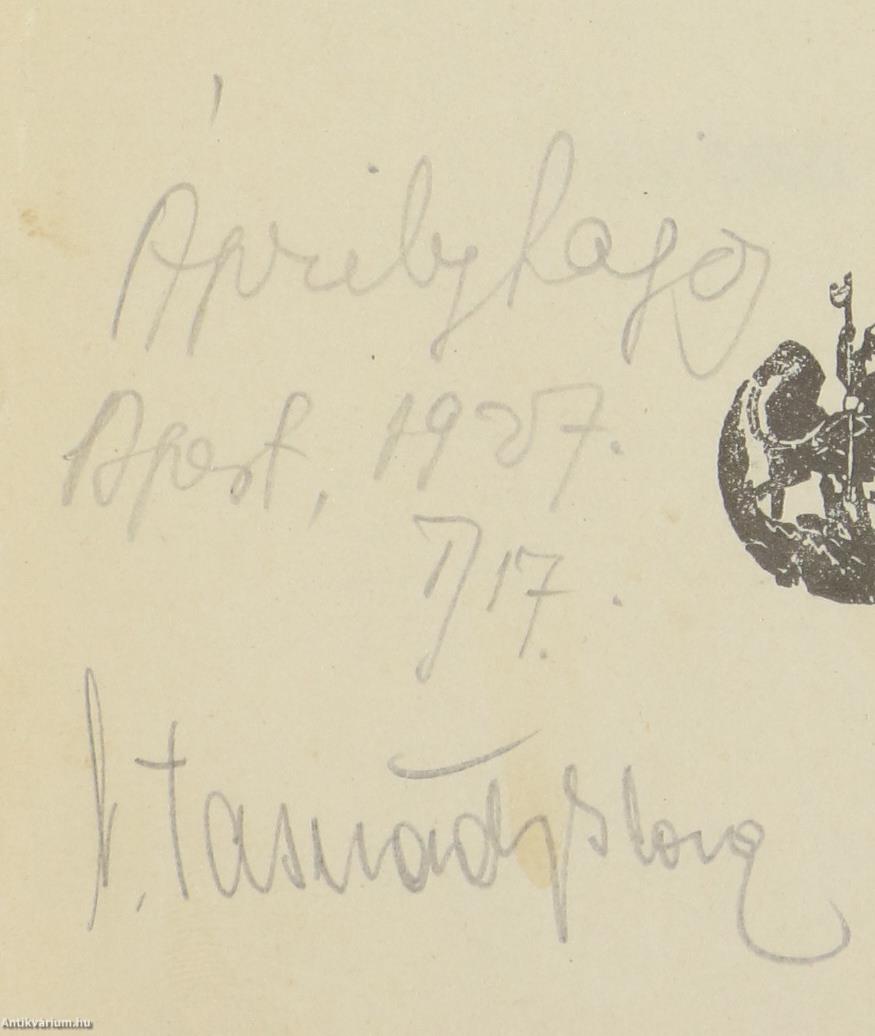 Áprily Lajos
Bpest, 1927.
17.
Tasnády Ilona
Antikvárium.hu